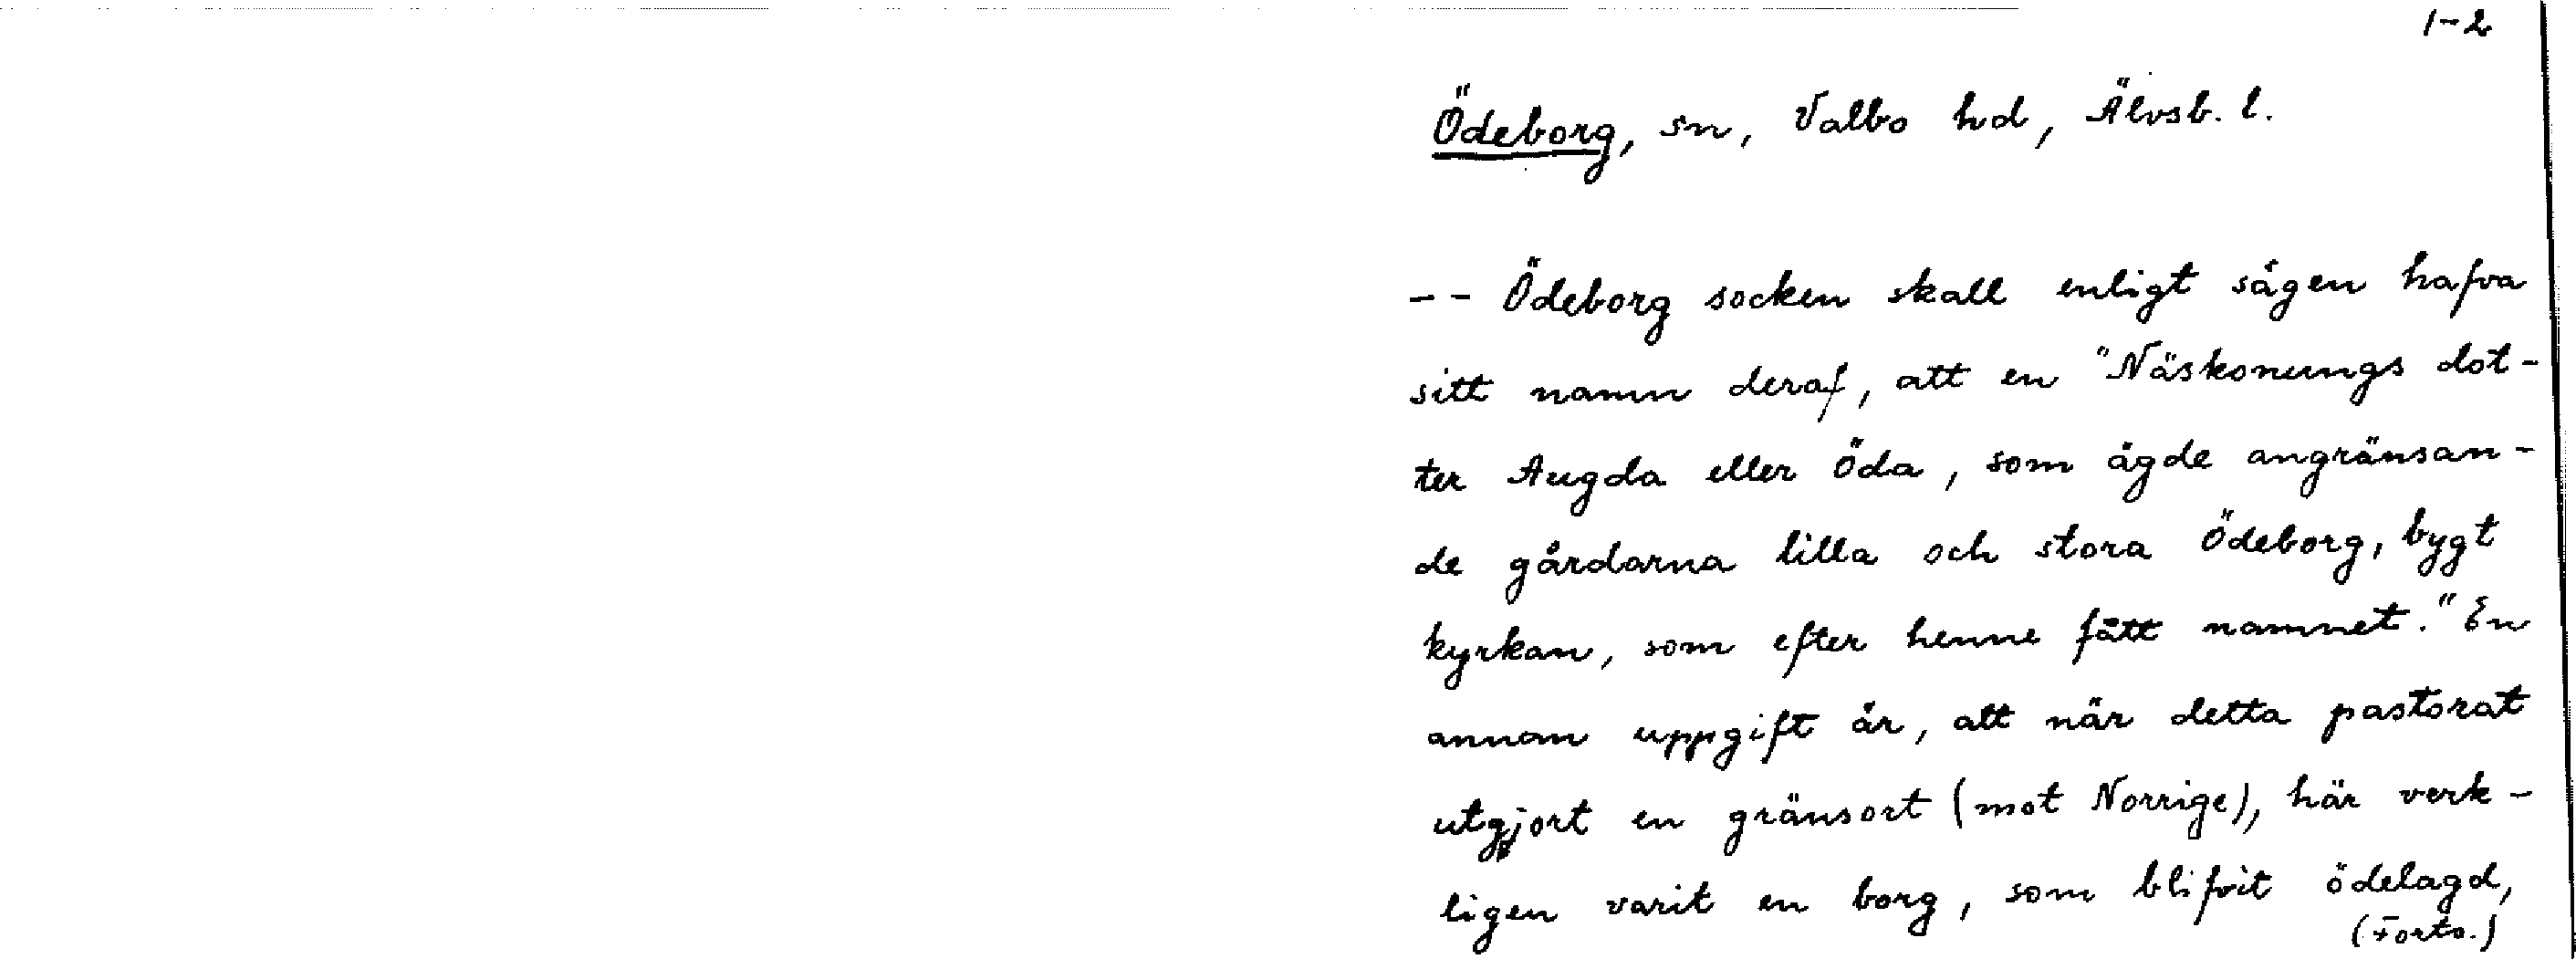 1-2
Ödeborg, sn, Valbo hd, Älvsb. l.
-- Ödeborg socken skall enligt sägen hafva
sitt namn deraf, att en "Näskonungs dot-
ter Augda eller Öda, som ägde angränsan-
de gårdarna lilla och stora Ödeborg, bygt
kyrkan, som efter henne fått namnet." En
annan uppgift är, att när detta pastorat
utgjort en gränsort (mot Norrige), här verk-
ligen varit en borg, som blifvit ödelagd,
(Forts.)